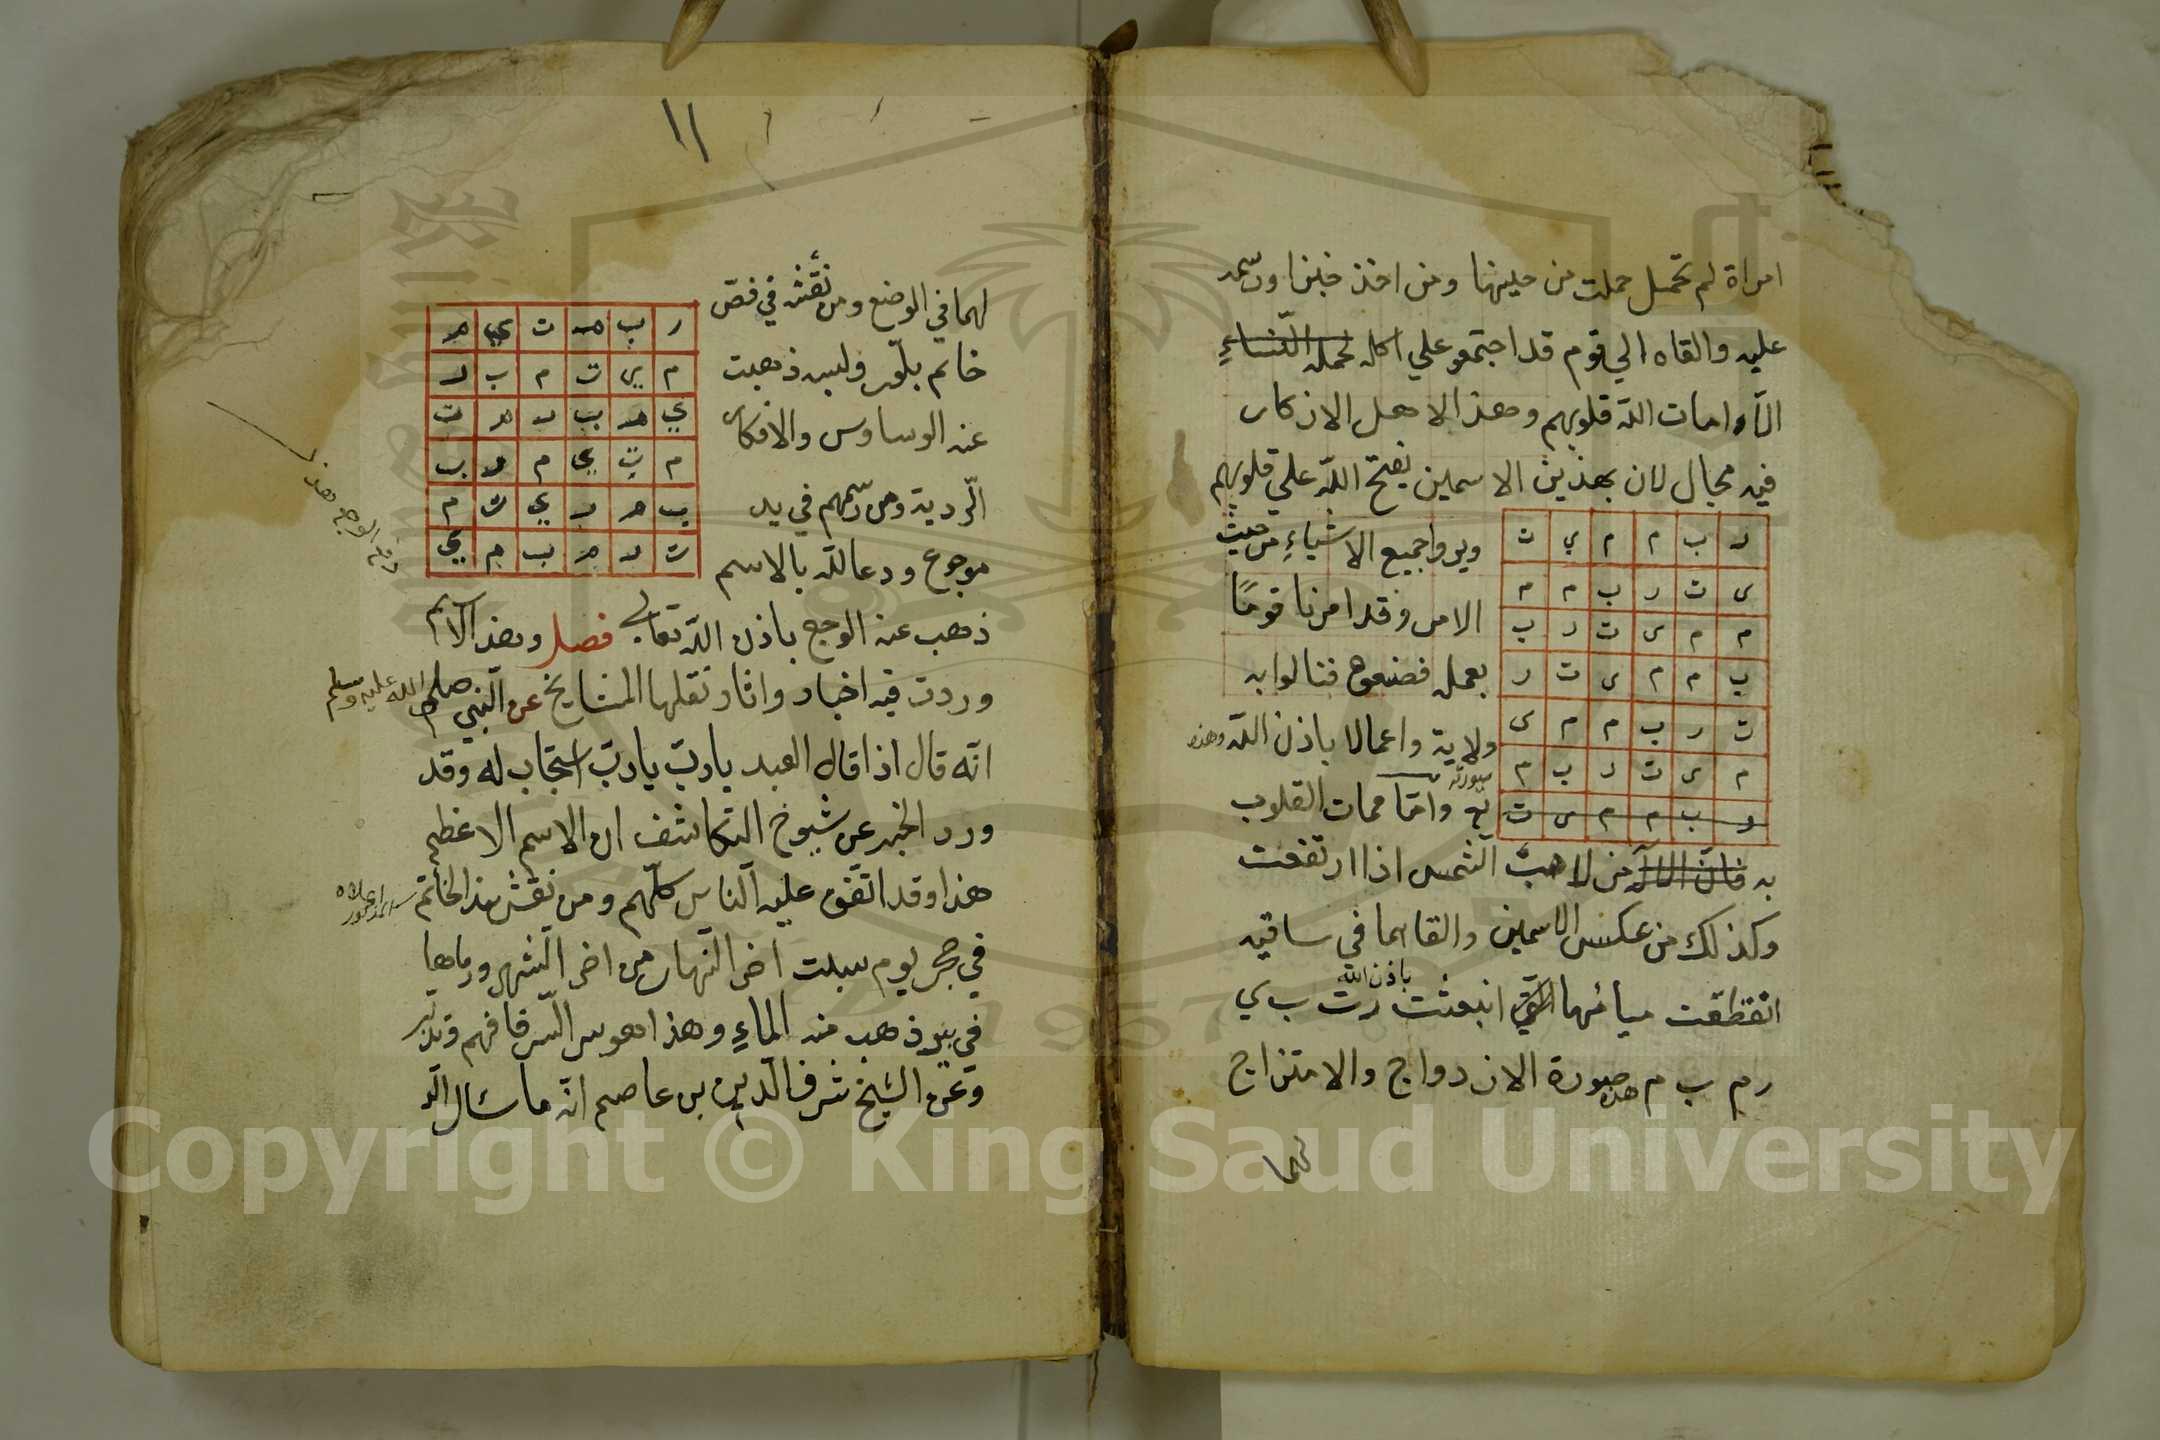 امراة لم تحمل حملت من حينها ومن اخذ خبزا ورسمه
عليه والقاه الي قوم قد اجتمعو علي اكله
امات الله قلوبهم وهذا لاهل الاذكار
فيه مجال لان بهذين الاسمين يفتح الله علي قلوبهم
ويروا جميع الاشياء من حيث
الامر وقد امرنا قوما
بعمله فصنعوه فنالوا به
ولاية واعمالا باذن الله وهذه
صورته
واما ممات القلوب
ر ب م م ي ت
ي ت ر ب م م
م م ي ت ر ب
ب م م ي ت ر
ت ر ب م م ي
م ي ت ر ب م
ر ب م م ي ت
به الشمس اذا ارتفعت
وكذلك من عكس الاسمين والقاهما في ساقيه
انقطعت مياهها انبعثت باذن الله رت ب ي
رم ب م هذه صورة الازدواج والامتزاج
لهما
١١
لهما في الوضع ومن نقشه في فص
خاتم بلور ولبسه ذهبت
عنه الوساوس والافكار
الردية ومن رسمهم في يد
موجوع ودعا لله بالاسم
ر ب م ت ي م
م ي ت م ب ر
ي م ب ر م ت
م ت ي م ر ب
ب م ر ي ت م
ت ر م ب م ي
ذهب عنه الوجع باذن الله تعالي فصل وهذا الاسم
وردت فيه اخبار واثار نقلها المشايخ عن النبي صلي الله عليه وسلم
انه قال اذا قال العبد يا رب يا رب استجاب له وقد
ورد الخبر عن شيوخ التكاشف ان الاسم الاعظم
هذا وقد اتفق عليه الناس كلهم ومن نقش هذا الخاتم
في حجر يوم سبت اخر النهار من اخر الشهر ورماها
في بير ذهب منه الماء وهذا هو سر السر فافهم وتدبر
وعن الشيخ شرف الدين بن عاصم انه ما سئال الله